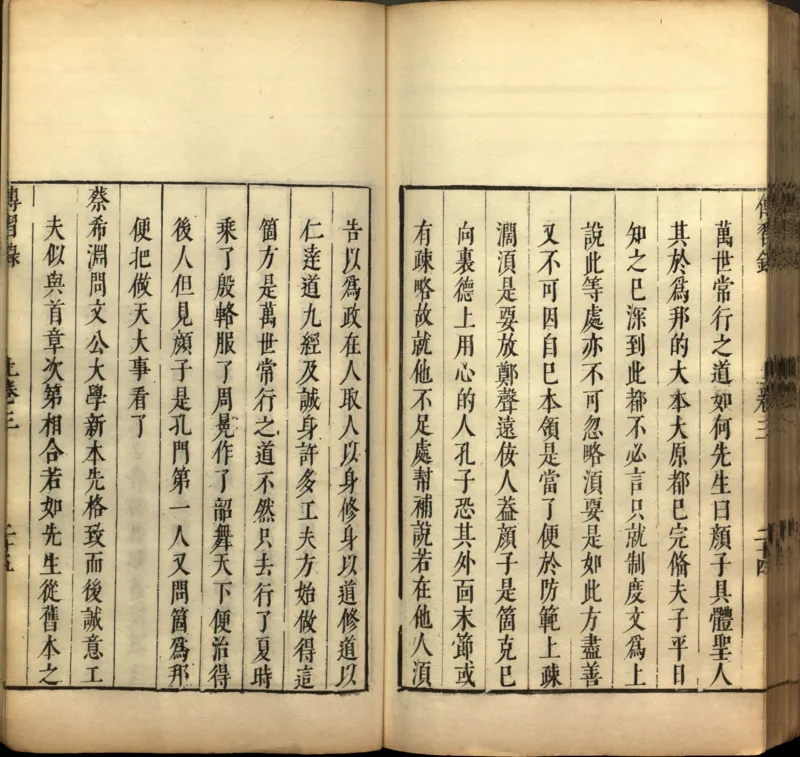 傳習錄
上卷三
二十四
萬世常行之道如何先生曰顔子具體聖人
其於爲邦的大本大原都已完備夫子平日
知之已深到此都不必言只就制度文爲上
說此等處亦不可忽略湏要是如此方盡善
又不可因自已本領是當了便於防範上疎
濶湏是要放鄭聲遠佞人葢顔子是箇克已
向裏德上用心的人孔子恐其外面末節或
有疎略故就他不足處幫補說若在他人湏
告以爲政在人取人以身修身以道修道以
仁逹道九經及誠身許多工夫方始做得這
箇方是萬世常行之道不然只去行了夏時
乘了殷輅服了周冕作了韶舞天下便治得
後人但見顔子是孔門第一人又問箇爲邦
便把做天大事看了
蔡希淵問文公大學新本先格致而後誠意工
夫似與首章次第相合若如先生從舊本之
傳習錄
上卷三
二十五